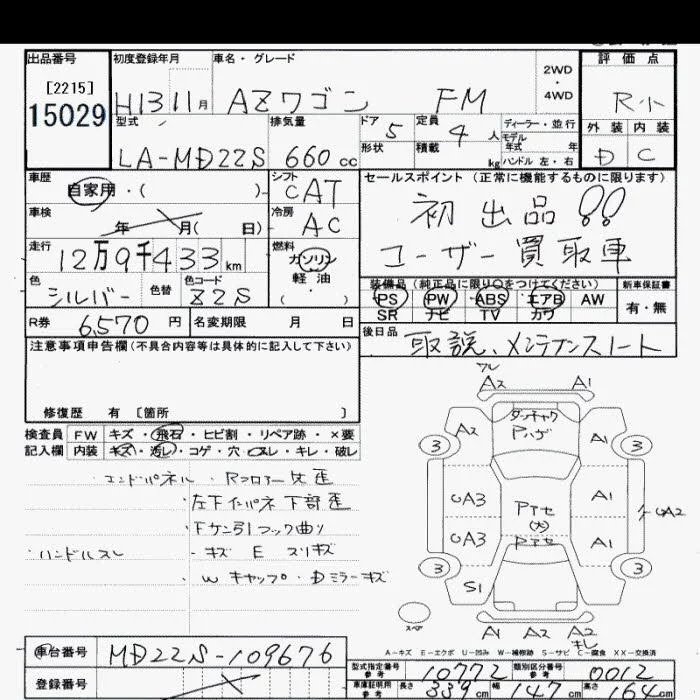 出品番号 初度登録年月 車名・グレード 2WD・4WD 評価点
[2215]
15029 H13 11月 AZワゴン FM R小
型式 排気量 ドア 5 定員 4人 ディーラー・並行 外装 内装
形状 積載 kg モデル年式 年 ハンドル 左・右
LA-MD22S 660cc D C
車歴 シフト セールスポイント (正常に機能するものに限ります)
自家用・( ) CAT
初出品!!
車検 冷房
年 月( 日) AC
ユーザー買取車
走行 燃料
12万9千433km ガソリン
軽油
・
( )
色 色替 色コード 装備品(純正品に限り○をつけてください) 新車保証書
シルバー Z2S PS PW ABS エアB AW 有・無
SR ナビ TV カワ
R券 6,570円 名変期限 月 日
後日品 取説、メンテナンスノート
注意事項申告欄(不具合内容等は具体的に記入して下さい)
修復歴 有 [箇所 ]
検査員 FW キズ・飛石・ヒビ割・リペア跡・×要
記入欄 内装 キズ・汚レ・コゲ・穴・スレ・キレ・破レ
エンドパネル・Rフロアー 歪
・左下インパネ下部歪
・下サン引フック曲り
・ハンドルスレ ・キズ E スリキズ
・Wキャップ・Dミラーキズ
A2 A1
A2 Pハゲ A1
3 3
UA3 A1
Pアセ
(大)
UA2
UA3 Pアセ A1
3 3
S1
スペア
A1 A2 A2
キレ
A-キズ E-エクボ U-凹み W-補修跡 S-サビ C-腐食 XX-交換済
車台番号 MD22S-109676
型式指定番号 参考 10772 類別区分番号 参考 0012
登録番号
車庫証明用 参考 長さ 339cm 幅 147cm 高さ 164cm